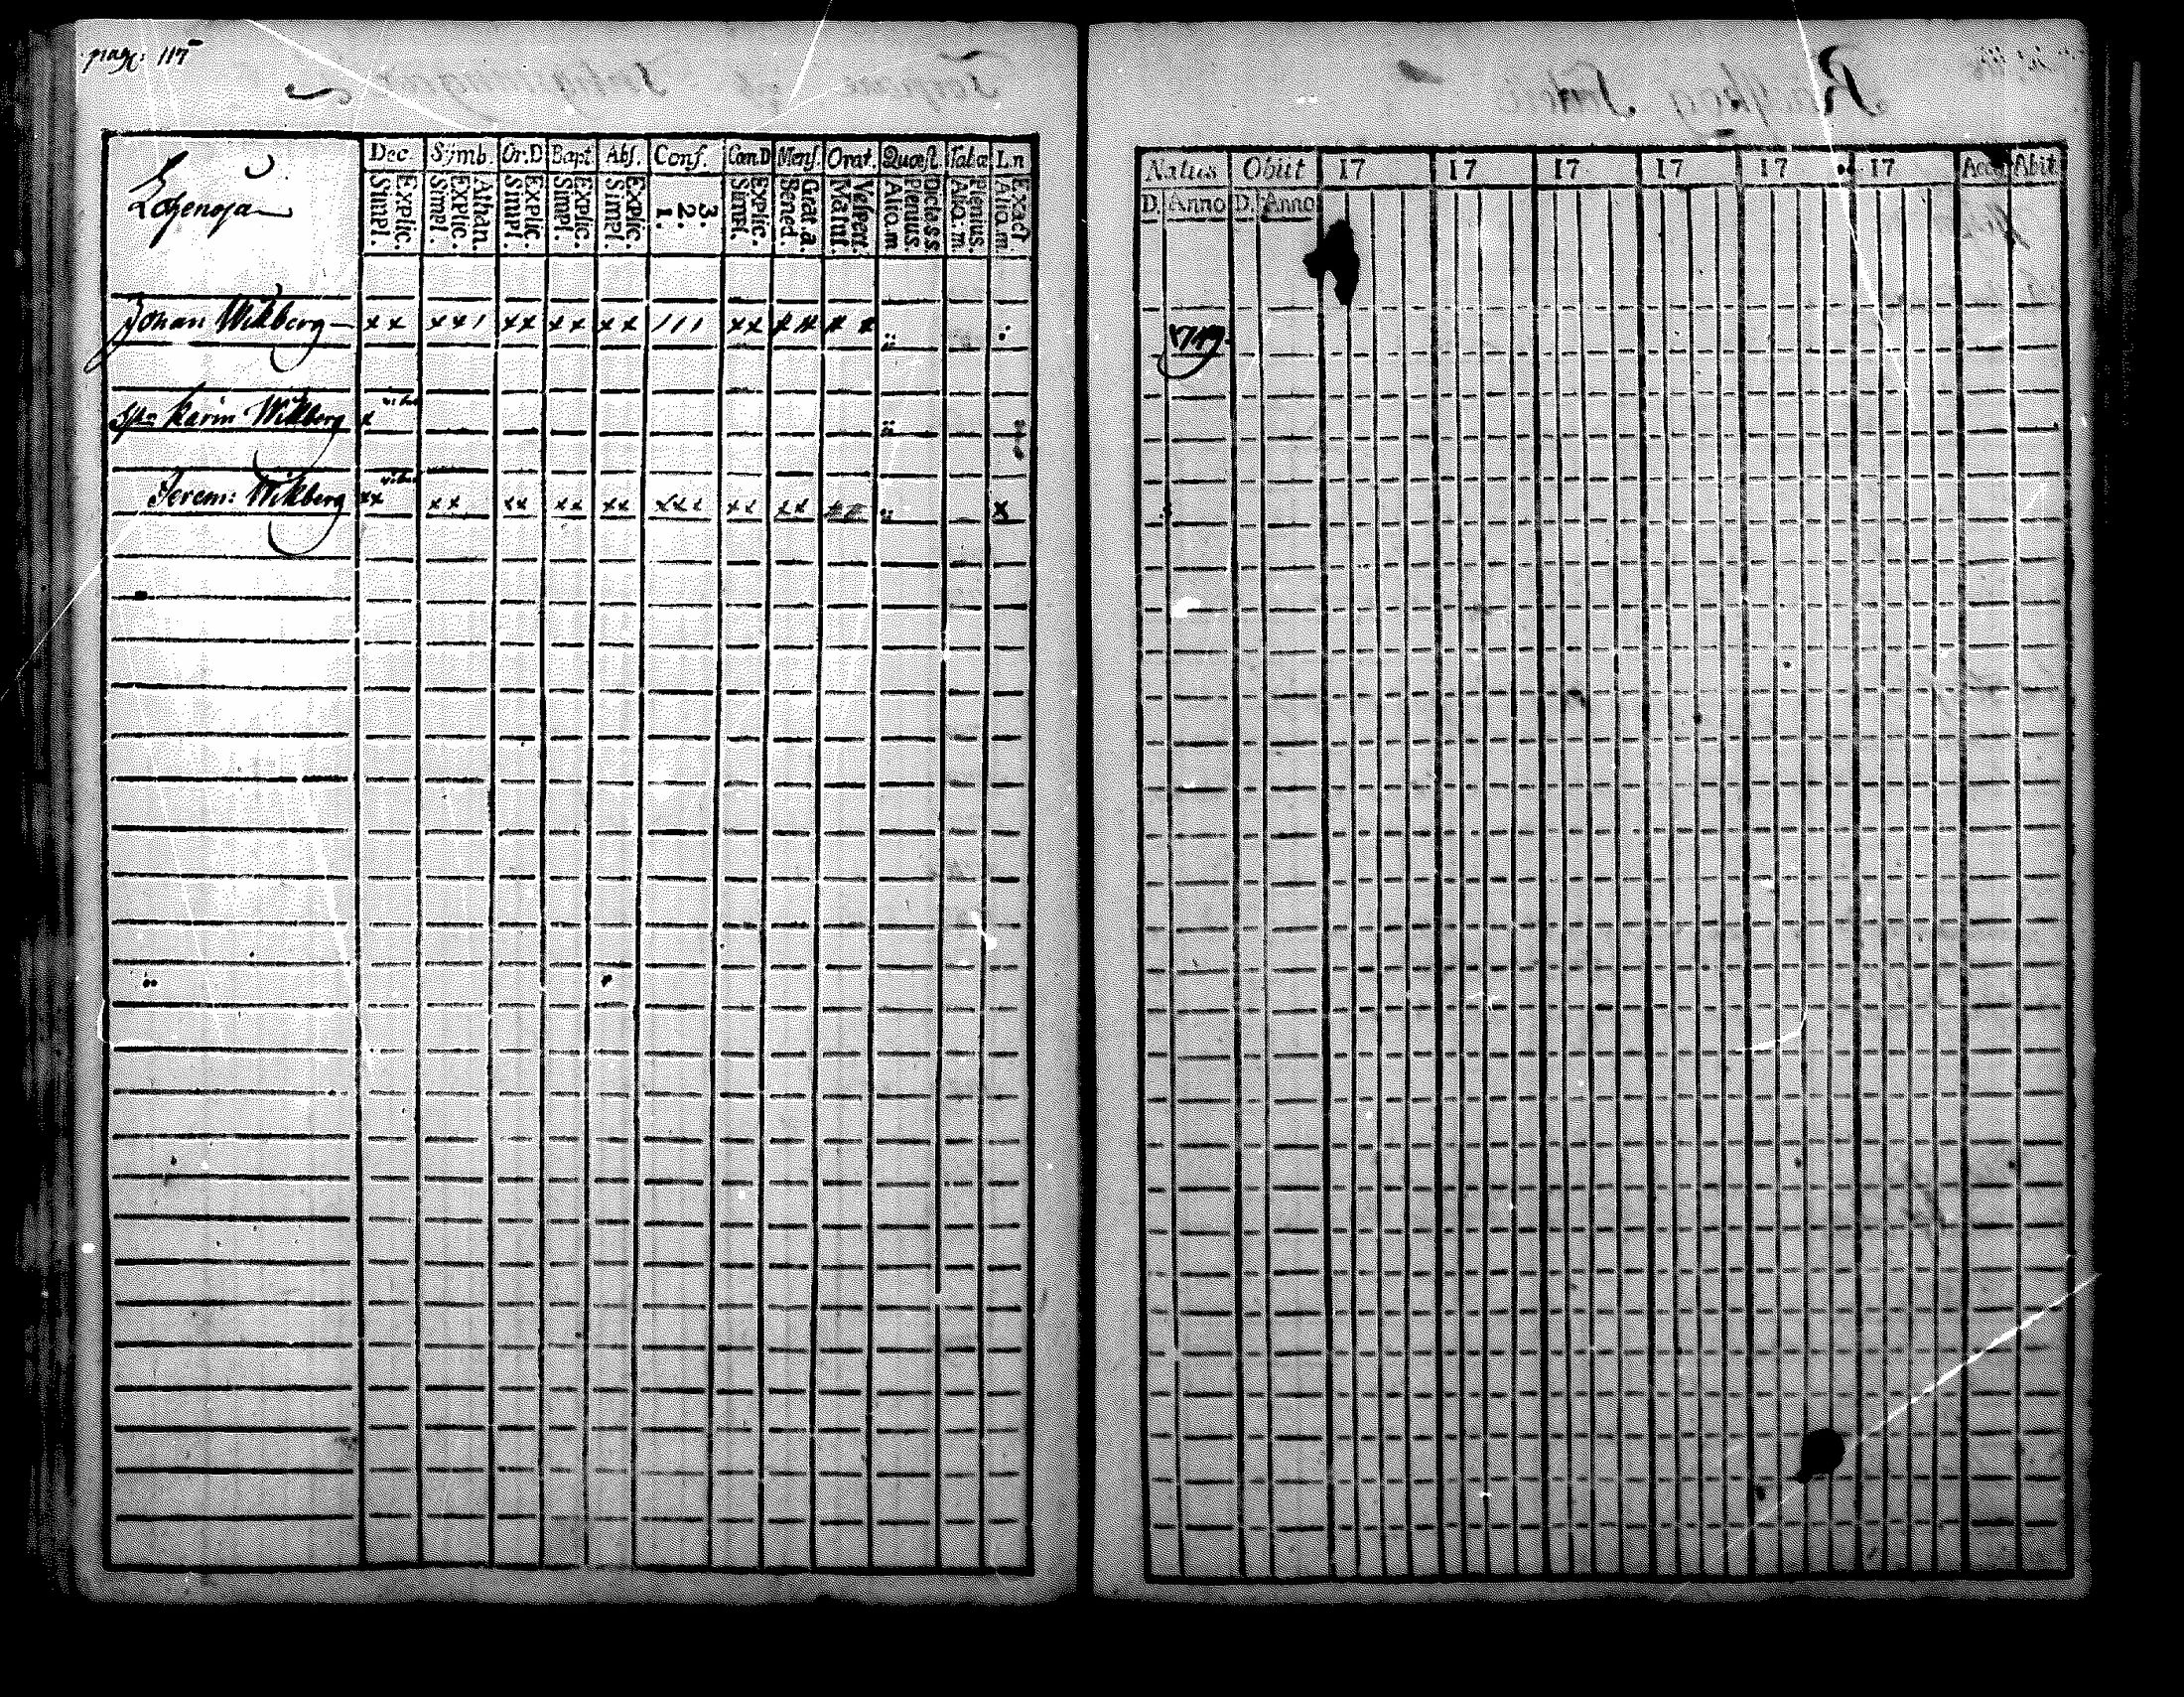 pag: 117
Dec. Symb. Or.D Bapt. Abs. Conf. Cœn.D Mens. Orat. Quæst. Tabæ L.n
Explic. Simpl. Athan. Explic. Simpl. Explic. Simpl. Explic. Simpl. Explic. Simpl. 3. 2. 1. Explic. Simpl. Grat.a Bened. Vespert. Matut. Dicta ss Plenius. Aliq.m Plenius. Aliq.m Exact. Aliq.m
Johan Wikberg x x x x / x x x x x x / / / x x
Karin Wikberg x
Jerem: Wikberg x x x x x x x x x x x x x x x x x x x
Natus Obiit 17 17 17 17 17 17 Acc. Abit
D. Anno D. Anno
1719.